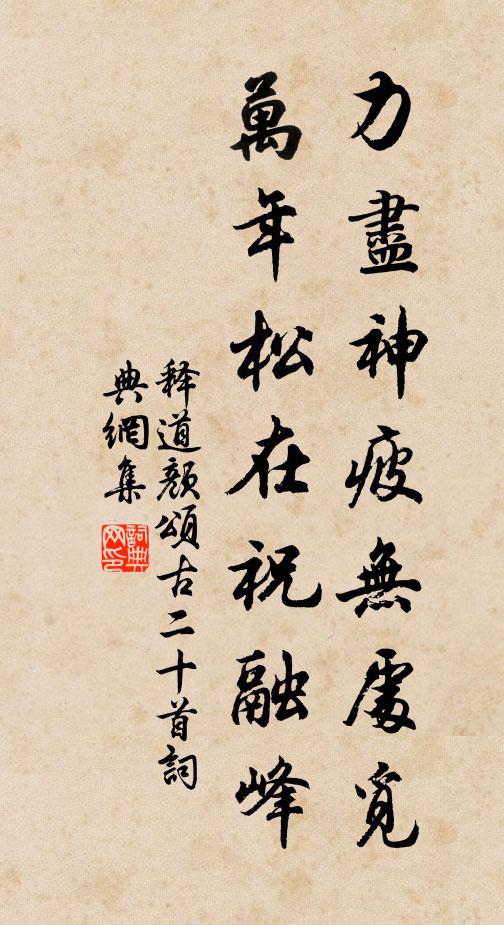 力盡神疲無處覓
萬年松在祝融峰
释道顏頌古二十首詞
典網集
詞典
网印